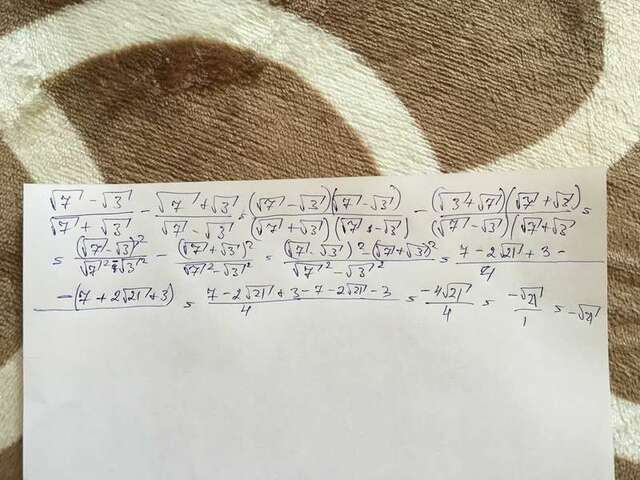 (√7 - √3)/(√7 + √3) - (√7 + √3)/(√7 - √3) = (√7 - √3)(√7 - √3)/(√7 + √3)(√7 - √3) - (√3 + √7)(√7 + √3)/(√7 - √3)(√7 + √3) =
= (√7 - √3)²/(√7² - √3²) - (√7 + √3)²/(√7² - √3²) = ((√7 - √3)² - (√7 + √3)²)/(√7² - √3²) = 7 - 2√21 + 3 -
- (7 + 2√21 + 3)/4 = (7 - 2√21 + 3 - 7 - 2√21 - 3)/4 = -4√21/4 = -√21/1 = -√21